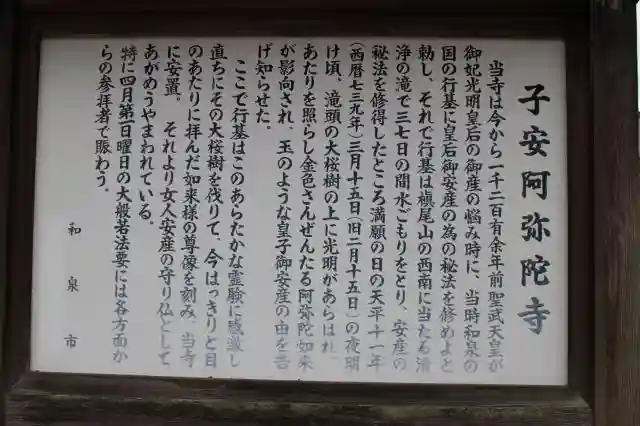 子安阿弥陀寺
当寺は今から一千二百有余年前聖武天皇が
御妃光明皇后の御産の悩み時に、当時和泉の
国の行基に皇后御安産の為の秘法を修めよと
勅し、それで行基は槇尾山の西南に当たる清
浄の滝で三七日の間水ごもりをとり、安産の
秘法を修得したところ満願の日の天平十一年
(西暦七三九年)三月十五日(旧二月十五日)の夜明
け頃、滝頭の大桜樹の上に光明があらはれ、
あたりを照らし金色さんぜんたる阿弥陀如来
が影向され、玉のような皇子御安産の由を告
げ知らせた。
ここで行基はこのあらたかな霊験に感激し
直ちにその大桜樹を伐りて、今はっきりと目
のあたりに拝んだ如来様の尊像を刻み、当寺
に安置。それより女人安産の守り仏として
あがめうやまわれている。
特に四月第一日曜日の大般若法要には各方面か
らの参拝者で賑わう。
和泉市